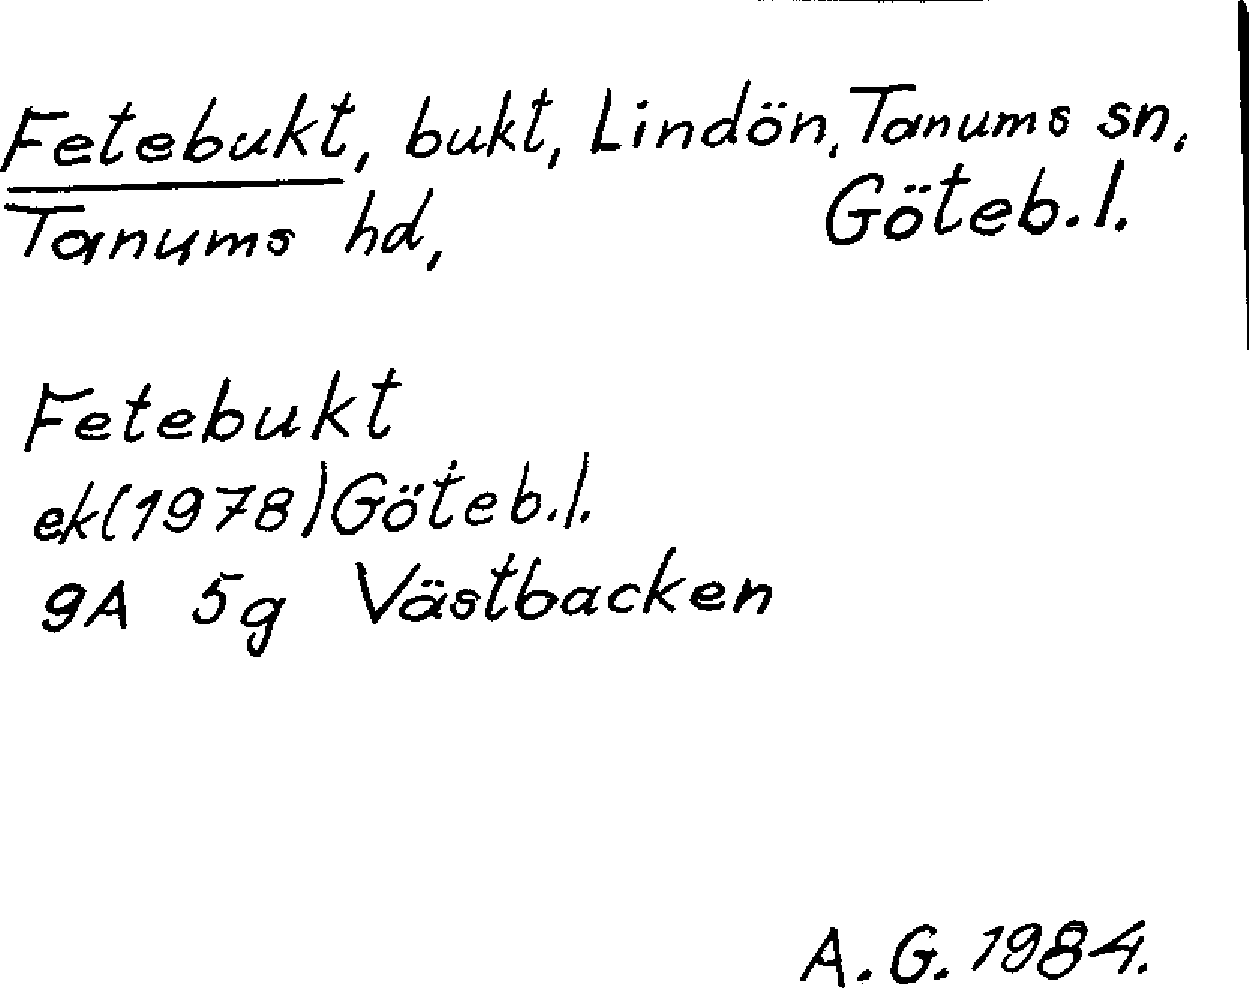 Fetebukt, bukt, Lindön, Tanums sn,
Tanums hd, Göteb. l.
Fetebukt
ek(1978)Göteb.l.
9A 5g Västbacken
A. G. 1984.